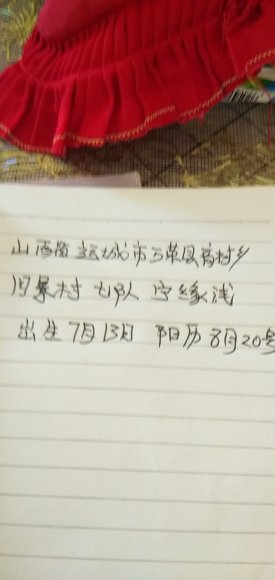 山西省运城市万荣县高村乡
闫景村七队宁缘浅
出生7月13日 阳历8月20号